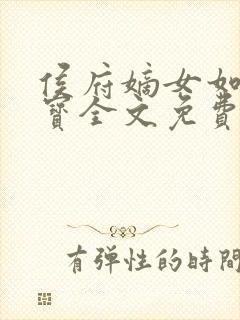 侯府嫡女如
寶全文免費
有弹性的時間